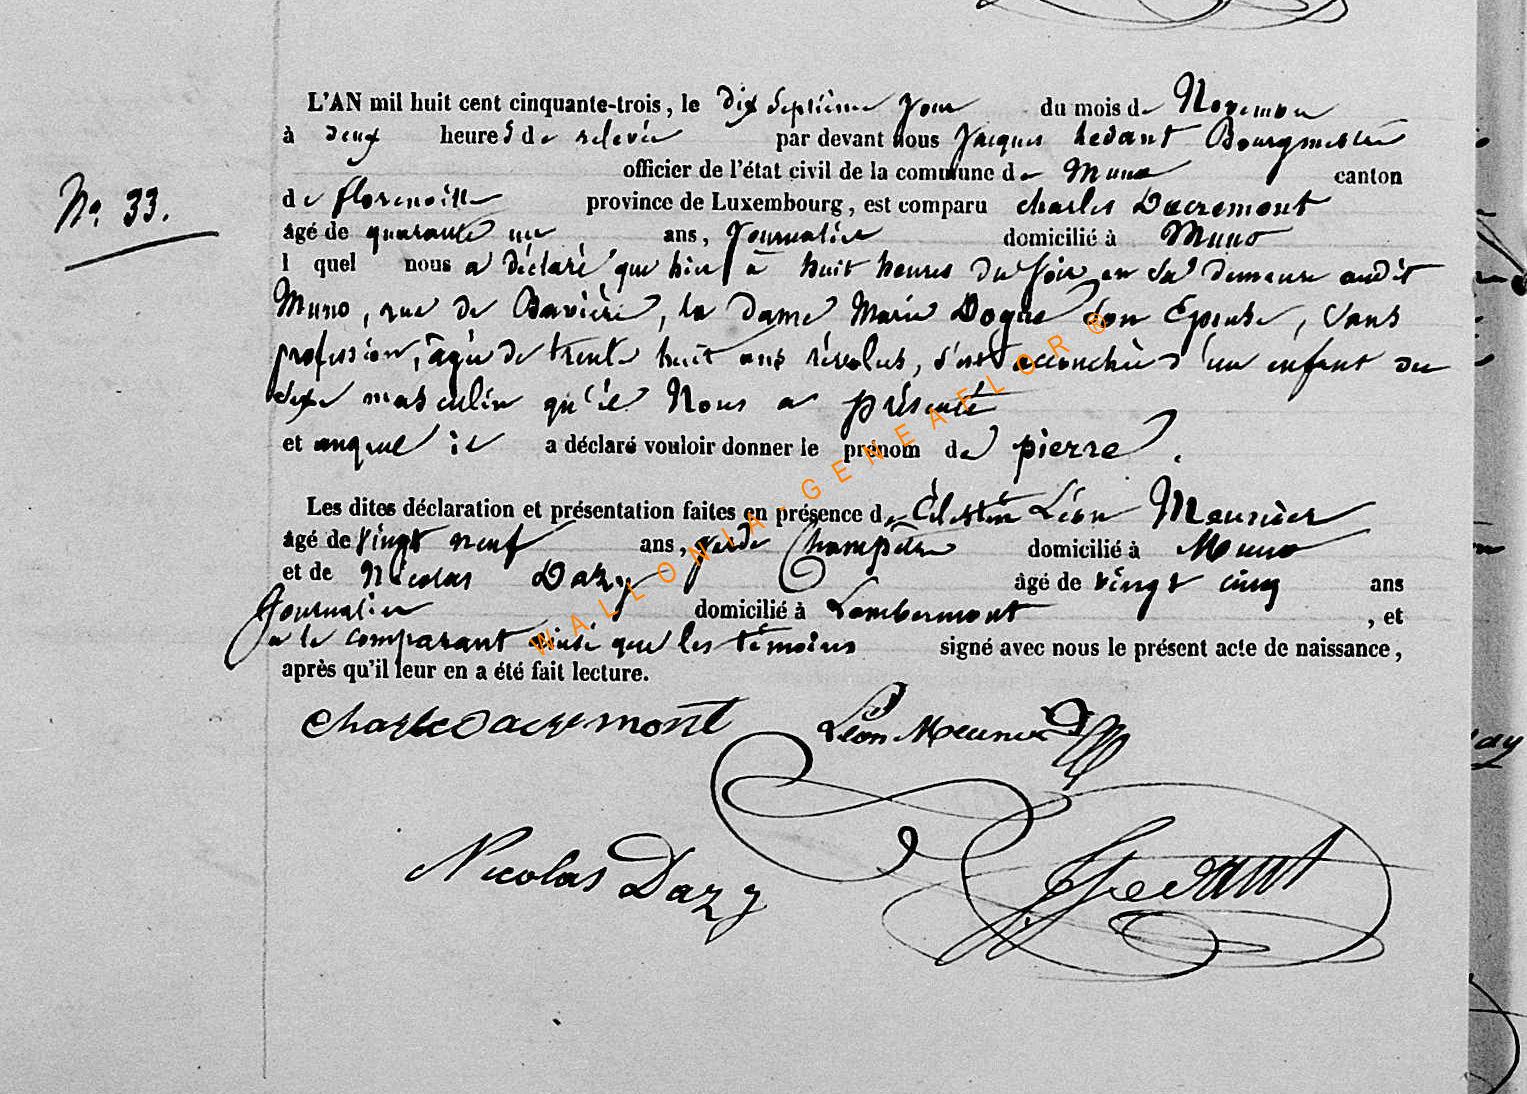 L'AN mil huit cent cinquante-trois, le dix septième jour du mois de Novembre
à deux heures de relevée par devant nous Jacques hedant Bourgmestre
officier de l'état civil de la commune de Muno canton
N.o 33.
de florenville province de Luxembourg, est comparu charles Dacremont
âgé de quarante un ans, Journalier domicilié à Muno
l quel nous a déclaré que hier à huit heures du soir en sa demeure audit
Muno, rue de Bavière, la dame Marie Dogué son Epouse, sans
profession, âgée de trente huit ans révolus, s'est accouchée d'un enfant du
sexe masculin qu'il Nous a présenté
et auquel il a déclaré vouloir donner le prénom de pierre.
Les dites déclaration et présentation faites en présence de Célestin Léon Meunier
âgé de vingt neuf ans, garde Champêtre domicilié à Muno
et de Nicolas Dazy âgé de vingt cinq ans
Journalier domicilié à Lambermont, et
a le comparant ainsi que les témoins signé avec nous le présent acte de naissance,
après qu'il leur en a été fait lecture.
Charle Dacremont Léon Meunier
Nicolas Dazy JHedant
WALLONIA-GENEAFLOR®